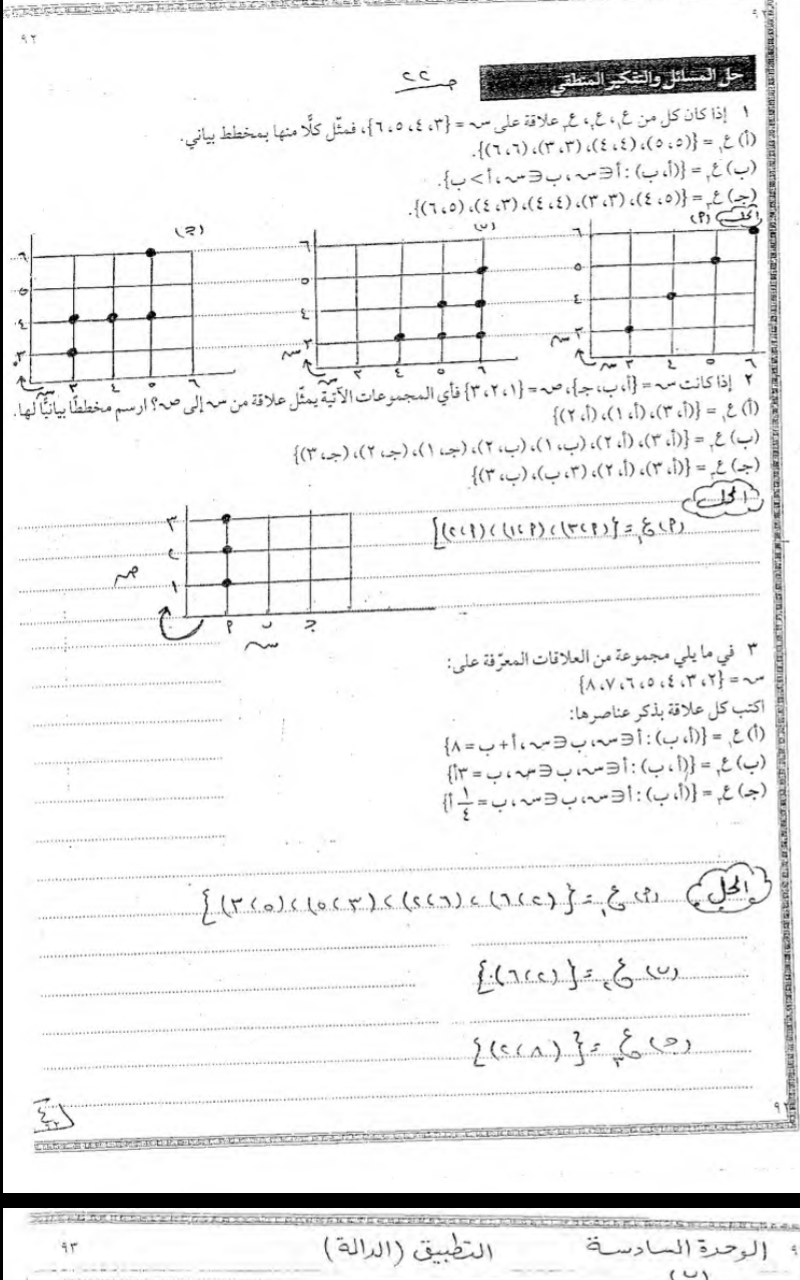 ٩٢
حل المسائل والتفكير المنطقي
صـ ٢٢
١ إذا كان كل من ع١، ع٢، ع٣ علاقة على سـ = {٣، ٤، ٥، ٦}، فمثّل كلًّا منها بمخطط بياني.
(أ) ع١ = {(٥، ٥)، (٤، ٤)، (٣، ٣)، (٦، ٦)}.
(ب) ع٢ = {(أ، ب) : أ ∈ سـ، ب ∈ سـ، أ > ب}.
(جـ) ع٣ = {(٥، ٤)، (٣، ٣)، (٤، ٤)، (٣، ٤)، (٥، ٦)}.
الحل (٢) (ب) (جـ)
٦ ٦ ٦
٥ ٥ ٥
٤ ٤ ٤
٣ سـ ٣ سـ ٣
٣ ٤ ٥ ٦ ٣ ٤ ٥ ٦ ٣ ٤ ٥ ٦
سـ سـ سـ
٢ إذا كانت سـ = {أ، ب، جـ}، صـ = {١، ٢، ٣} فأي المجموعات الآتية يمثّل علاقة من سـ إلى صـ؟ ارسم مخططًا بيانيًّا لها.
(أ) ع١ = {(أ، ٣)، (أ، ١)، (أ، ٢)}
(ب) ع٢ = {(أ، ٣)، (أ، ٢)، (ب، ١)، (ب، ٢)، (جـ، ١)، (جـ، ٢)، (جـ، ٣)}
(جـ) ع٣ = {(أ، ٣)، (أ، ٢)، (٣، ب)، (ب، ٣)}
الحل
(٢) ع١ = {(٢، ٣)، (٢، ١)، (٢، ٢)}
٣
٢
صـ
١
٢ ب جـ
سـ
٣ في ما يلي مجموعة من العلاقات المعرّفة على:
سـ = {٢، ٣، ٤، ٥، ٦، ٧، ٨}
اكتب كل علاقة بذكر عناصرها:
(أ) ع١ = {(أ، ب) : أ ∈ سـ، ب ∈ سـ، أ + ب = ٨}
(ب) ع٢ = {(أ، ب) : أ ∈ سـ، ب ∈ سـ، ب = ٣أ}
(جـ) ع٣ = {(أ، ب) : أ ∈ سـ، ب ∈ سـ، ب = ١/٤ أ}
الحل (٢) ع١ = {(٢، ٦)، (٦، ٢)، (٣، ٥)، (٥، ٣)}
(ب) ع٢ = {(٢، ٦)}
(جـ) ع٣ = {(٨، ٢)}
٩٢
٩٣
الوحدة السادسة التطبيق (الدالة)
(ب)